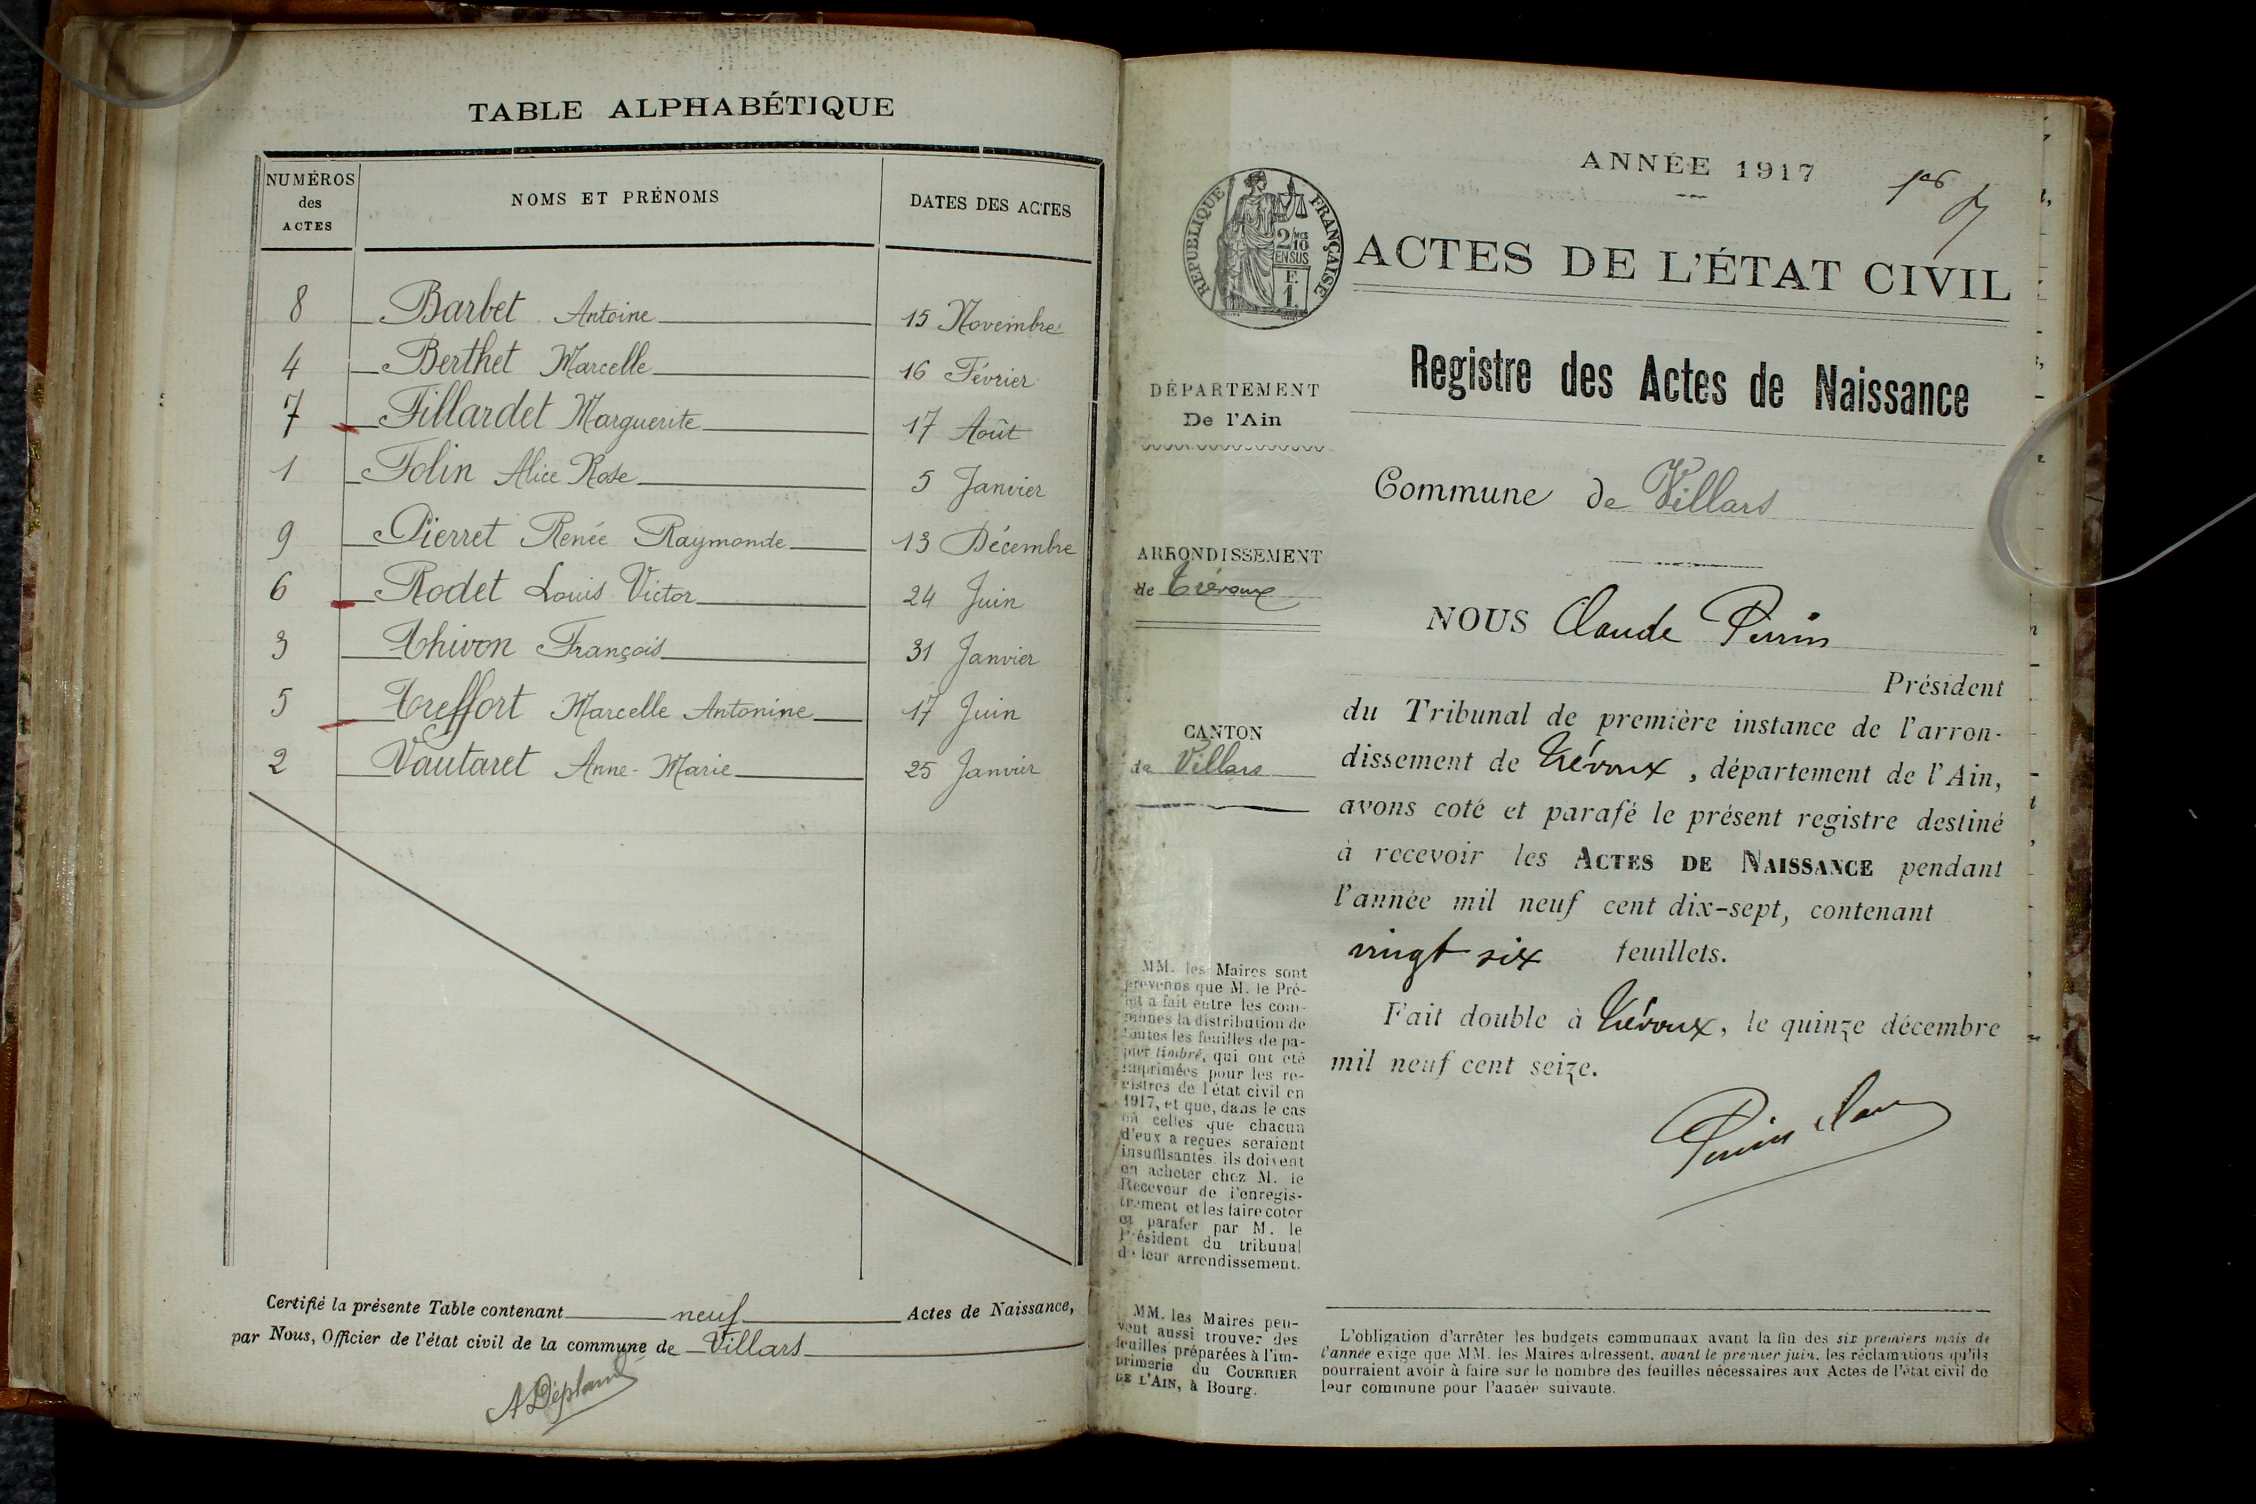 TABLE ALPHABÉTIQUE
NUMÉROS des ACTES
NOMS ET PRÉNOMS
DATES DES ACTES
8 Barbet Antoine 15 Novembre
4 Berthet Marcelle 16 Février
7 Fillardet Marguerite 17 Août
1 Folin Alice Rose 5 Janvier
9 Pierret Renée Raymonde 13 Décembre
6 Rodet Louis Victor 24 Juin
3 Thivon François 31 Janvier
5 Treffort Marcelle Antonine 17 Juin
2 Vautaret Anne-Marie 25 Janvier
Certifié la présente Table contenant neuf Actes de Naissance,
par Nous, Officier de l'état civil de la commune de Villars
ANNÉE 1917
RÉPUBLIQUE FRANÇAISE
2/10 MES
EN SUS
F.
1
ACTES DE L'ÉTAT CIVIL
Registre des Actes de Naissance
DÉPARTEMENT
De l'Ain
Commune de Villars
ARRONDISSEMENT
de Trévoux
CANTON
de Villars
NOUS Claude Perrin
Président
du Tribunal de première instance de l'arron-
dissement de Trévoux, département de l'Ain,
avons coté et parafé le présent registre destiné
à recevoir les ACTES DE NAISSANCE pendant
l'année mil neuf cent dix-sept, contenant
vingt six feuillets.
Fait double à Trévoux, le quinze décembre
mil neuf cent seize.
MM. les Maires sont
prévenus que M. le Pré-
fet a fait entre les com-
munes la distribution de
toutes les feuilles de pa-
pier timbré, qui ont été
imprimées pour les re-
gistres de l'état civil en
1917, et que, dans le cas
où celles que chacun
d'eux a reçues seraient
insuffisantes ils doivent
en acheter chez M. le
Receveur de l'enregis-
trement et les faire coter
et parafer par M. le
Président du tribunal
de leur arrondissement.
MM. les Maires peu-
vent aussi trouver des
feuilles préparées à l'im-
primerie du COURRIER
DE L'AIN, à Bourg.
L'obligation d'arrêter les budgets communaux avant la fin des six premiers mois de
l'année exige que MM. les Maires adressent, avant le premier juin, les réclamations qu'ils
pourraient avoir à faire sur le nombre des feuilles nécessaires aux Actes de l'état civil de
leur commune pour l'année suivante.